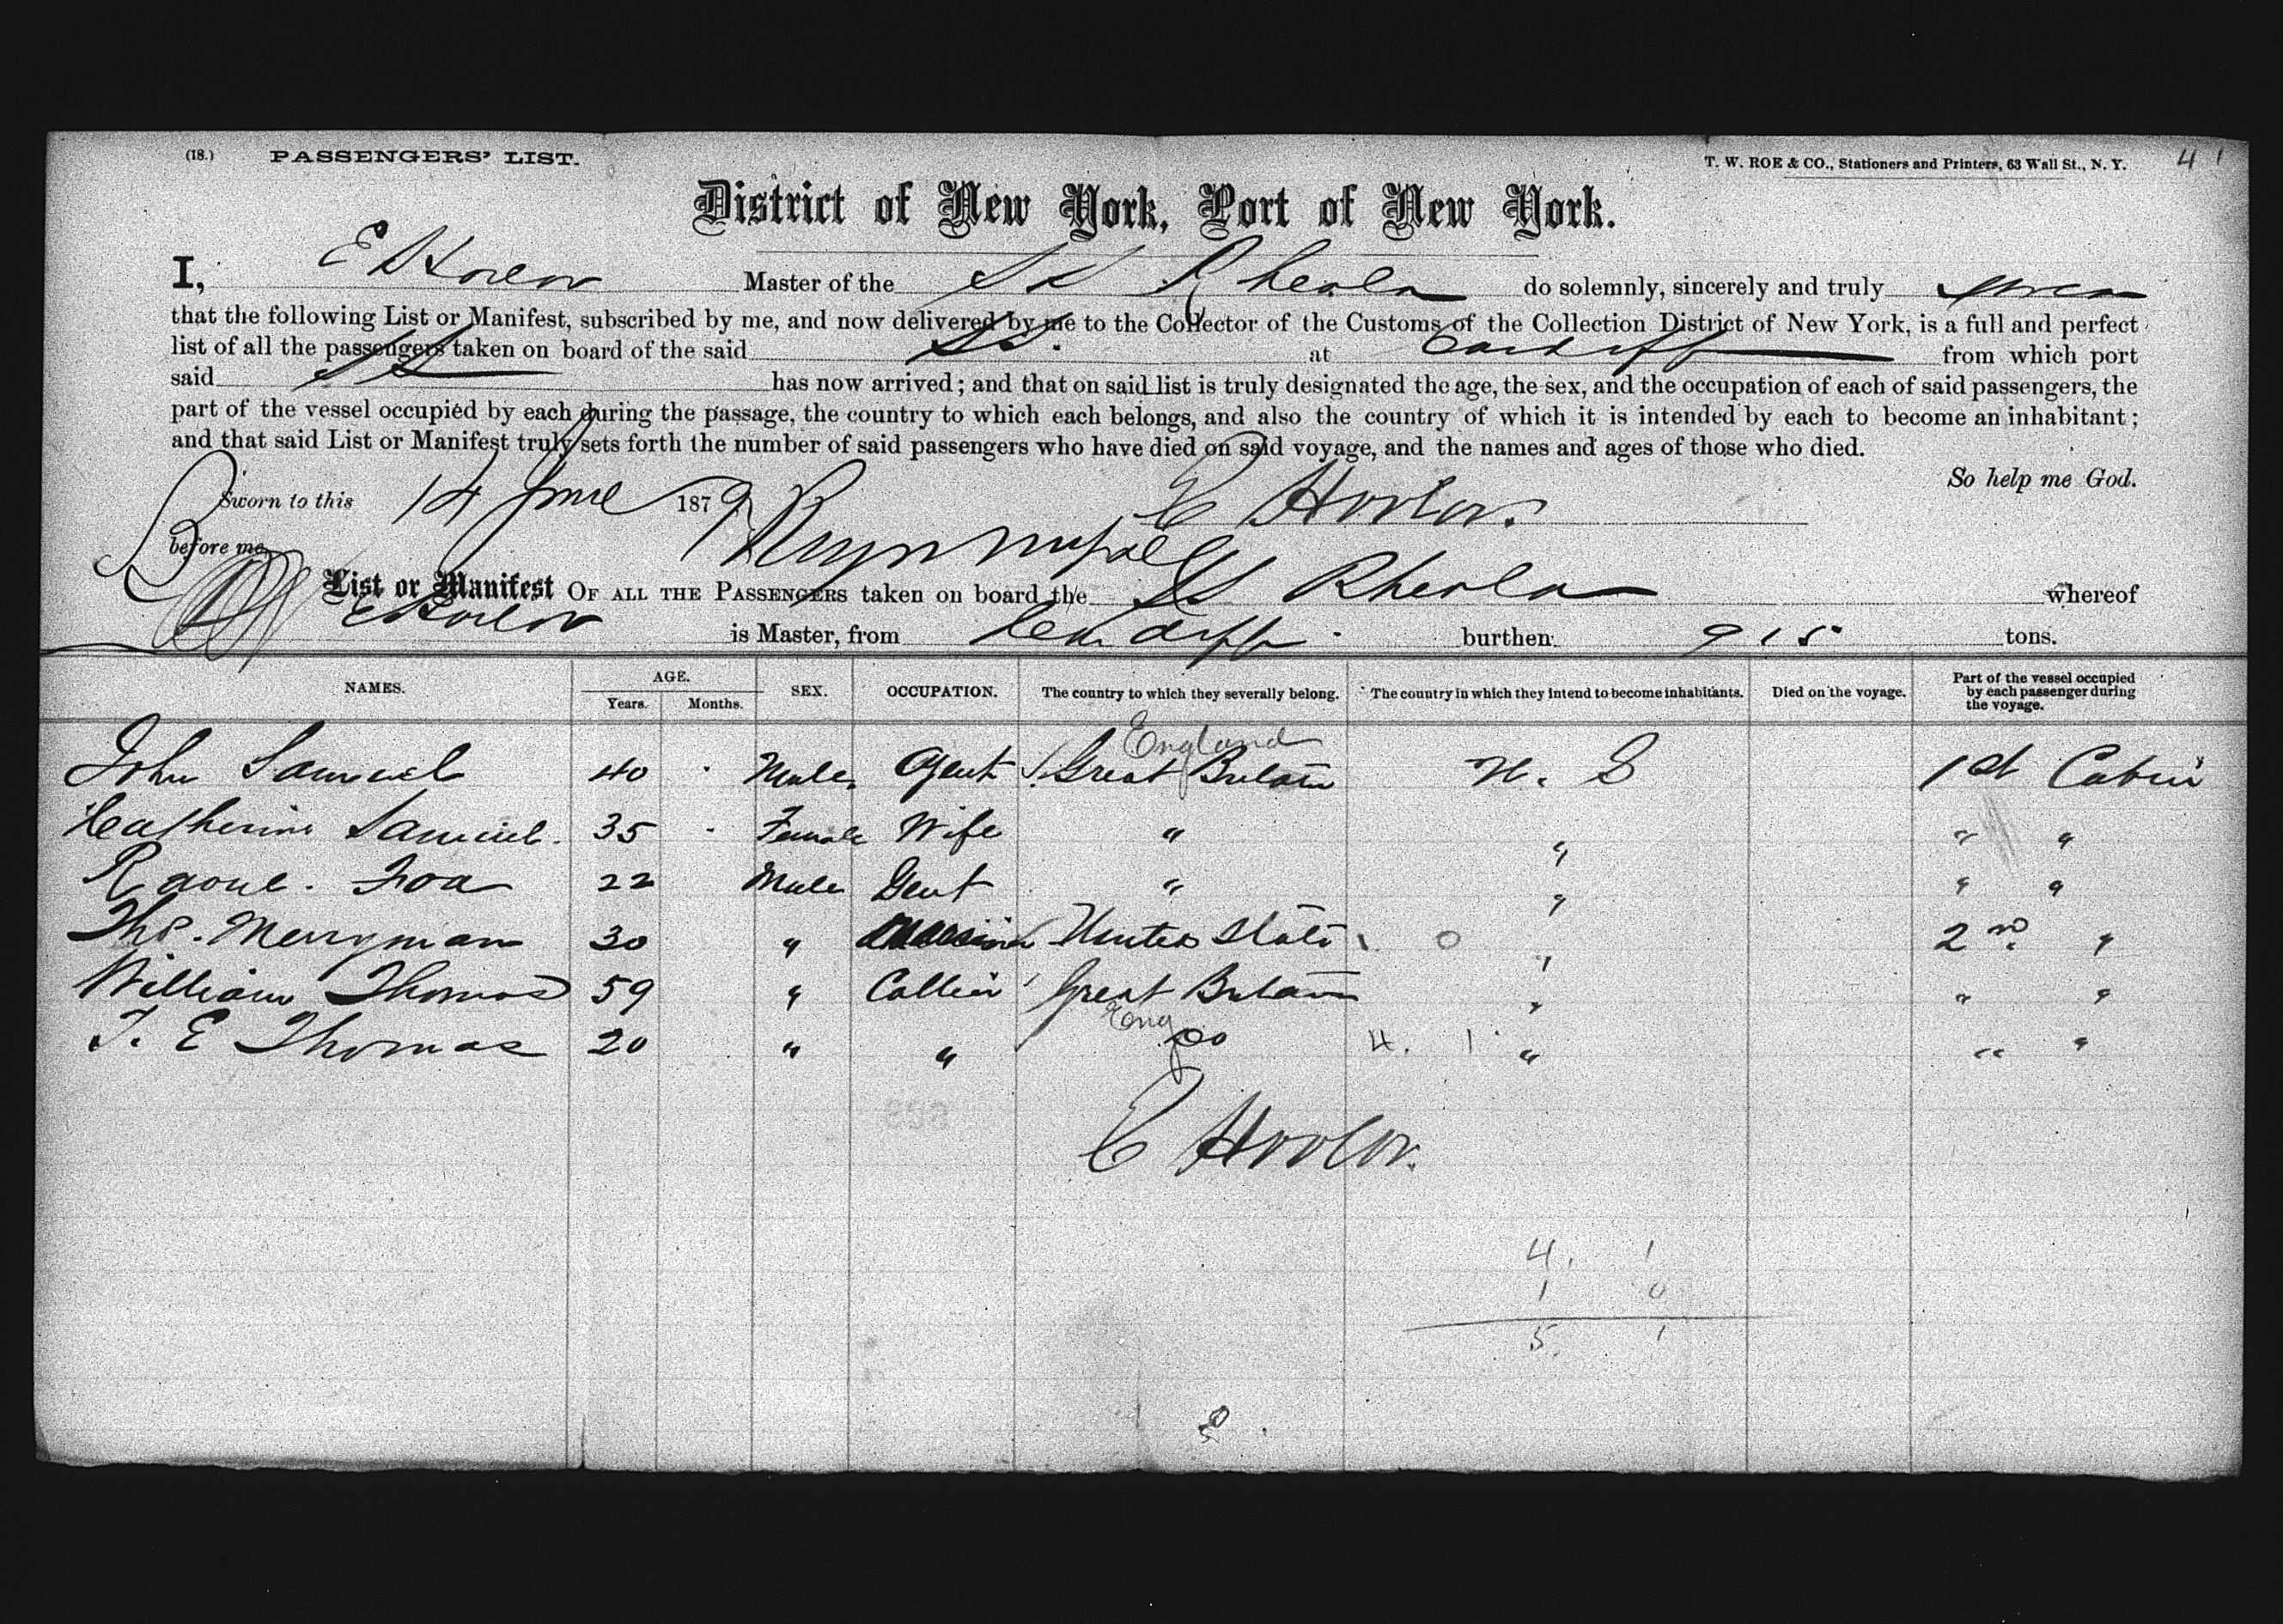 (18.) PASSENGERS' LIST. T. W. ROE & CO., Stationers and Printers, 63 Wall St., N. Y. 4 1
District of New York, Port of New York.
I, E Master of the SS Rheola do solemnly, sincerely and truly swear
that the following List or Manifest, subscribed by me, and now delivered by me to the Collector of the Customs of the Collection District of New York, is a full and perfect
list of all the passengers taken on board of the said SS. at Cardiff from which port
said SS has now arrived; and that on said list is truly designated the age, the sex, and the occupation of each of said passengers, the
part of the vessel occupied by each during the passage, the country to which each belongs, and also the country of which it is intended by each to become an inhabitant;
and that said List or Manifest truly sets forth the number of said passengers who have died on said voyage, and the names and ages of those who died.
So help me God.
Sworn to this 14 June 1879 E
before me
List or Manifest OF ALL THE PASSENGERS taken on board the SS Rheola whereof
E is Master, from Cardiff burthen 915 tons.
NAMES. AGE. Years. Months. SEX. OCCUPATION. The country to which they severally belong. The country in which they intend to become inhabitants. Died on the voyage. Part of the vessel occupied by each passenger during the voyage.
England
John Samuel 40 Male Agent Great Britain U. S 1st Cabin
Catherine Samuel. 35 Female Wife " " " "
Raoul. Foa 22 Male Gent " " " "
Thos. Merryman 30 " United States 0 " 2nd "
William Thomas 59 " Collier Great Britain " " "
Eng
T. E Thomas 20 " " Do 4. 1 " " "
E
4. 1
1 0
5. 1